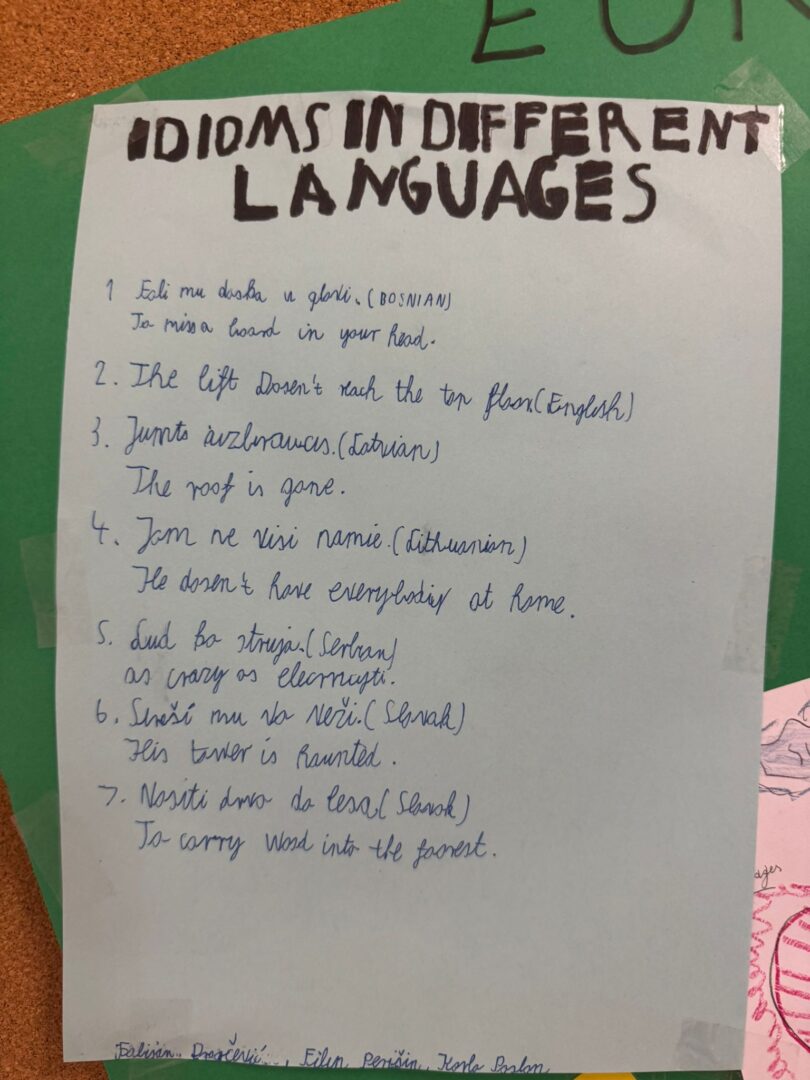 EUR
IDIOMS IN DIFFERENT
LANGUAGES
1 Fali mu daska u glavi. (BOSNIAN)
To miss a board in your head.
2. The lift Dosen't reach the top floor. (English)
3. Jumts aizbraucis. (Latvian)
The roof is gone.
4. Jam ne visi namie. (Lithuanian)
He dosen't have everybody at home.
5. Lud ko struja. (Serbian)
as crazy as
6. Straší mu vo veži. (Slovak)
His tower is haunted.
7. Nositi drvo do lesa. (Slovak)
To carry wood into the foorest.
Eilin Perišin, Karlo
ages